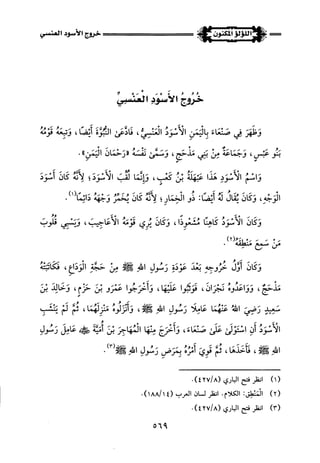 خروج الأسود العنسي
اللؤلؤ المكنون
خُرُوجُ الأَسْوَدِ العَنْسِيِّ
وَظَهَرَ فِي صَنْعَاءَ بِاليَمَنِ الأَسْوَدُ العَنْسِيُّ، فَادَّعَى النُّبُوَّةَ أَيْضًا، وَتَبِعَهُ قَوْمُهُ
بَنُو عَبْسٍ، وَجَمَاعَةٌ مِنْ بَنِي مَذْحِجٍ، وَسَمَّى نَفْسَهُ «رَحْمَانَ اليَمَنِ».
وَاسْمُ الأَسْوَدِ هَذَا عَبْهَلَةُ بْنُ كَعْبٍ، وَإِنَّمَا لُقِّبَ الأَسْوَدَ؛ لِأَنَّهُ كَانَ أَسْوَدَ
الوَجْهِ، وَكَانَ يُقَالُ لَهُ أَيْضًا: ذُو الخِمَارِ؛ لِأَنَّهُ كَانَ يُخَمِّرُ وَجْهَهُ دَائِمًا(١).
وَكَانَ الأَسْوَدُ كَاهِنًا مُشَعْوِذًا، وَكَانَ يُرِي قَوْمَهُ الأَعَاجِيبَ، وَيَسْبِي قُلُوبَ
مَنْ سَمِعَ مَنْطِقَهُ(٢).
وَكَانَ أَوَّلُ خُرُوجِهِ بَعْدَ عَوْدَةِ رَسُولِ اللهِ ﷺ مِنْ حَجَّةِ الوَدَاعِ، فَكَاتَبَتْهُ
مَذْحِجٌ، وَوَاعَدُوهُ نَجْرَانَ، فَوَثَبُوا عَلَيْهَا، وَأَخْرَجُوا عَمْرَو بْنَ حَزْمٍ، وَخَالِدَ بْنَ
سَعِيدٍ رَضِيَ اللهُ عَنْهُمَا عَامِلَا رَسُولِ اللهِ ﷺ، وَأَنْزَلُوهُ مَنْزِلَهُمَا، ثُمَّ لَمْ يَنْشَبِ
الأَسْوَدُ أَنِ اسْتَوْلَى عَلَى صَنْعَاءَ، وَأَخْرَجَ مِنْهَا المُهَاجِرَ بْنَ أُمَيَّةَ عَامِلَ رَسُولِ
اللهِ ﷺ، فَأَخَذَهَا، ثُمَّ قَوِيَ أَمْرُهُ بِمَرَضِ رَسُولِ اللهِ ﷺ(٣).
(١) انظر فتح الباري (٤٢٧/٨).
(٢) المَنْطِقُ: الكلام. انظر لسان العرب (١٨٨/١٤).
(٣) انظر فتح الباري (٤٢٧/٨).
٥٦٩